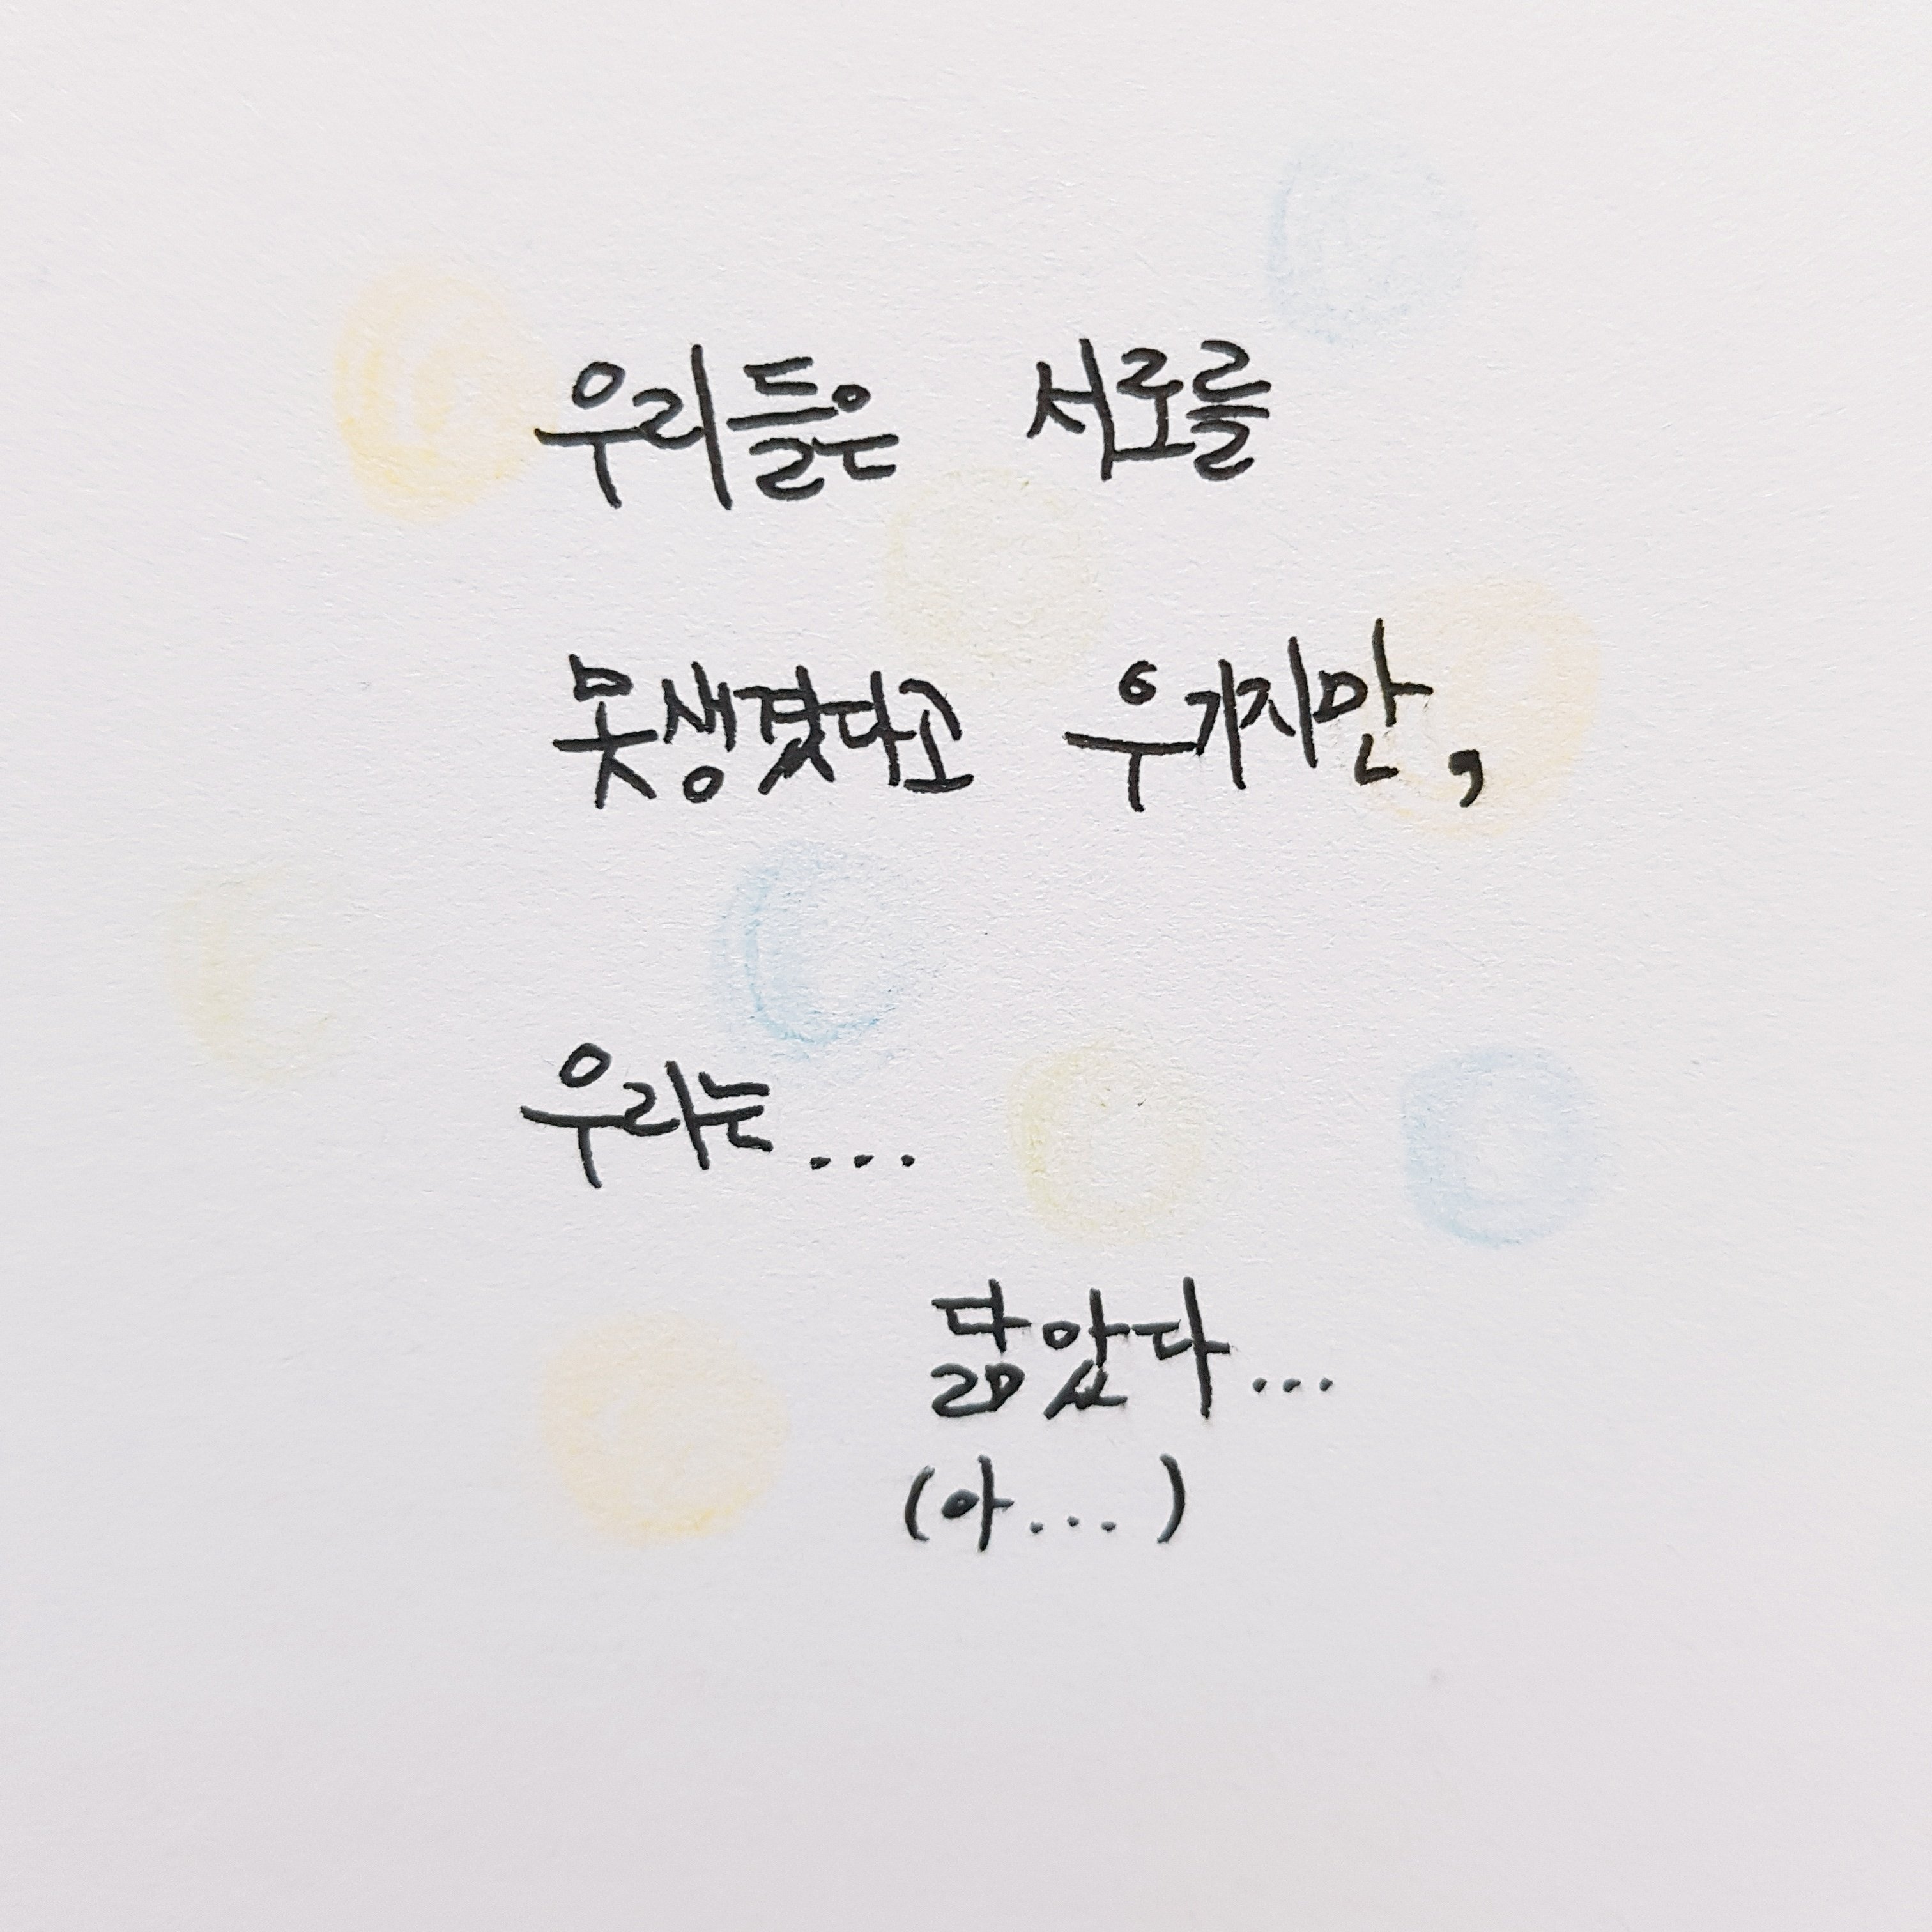 우리들은 서로를
못생겼다고 우기지만,
우리는...
닮았다...
(아...)